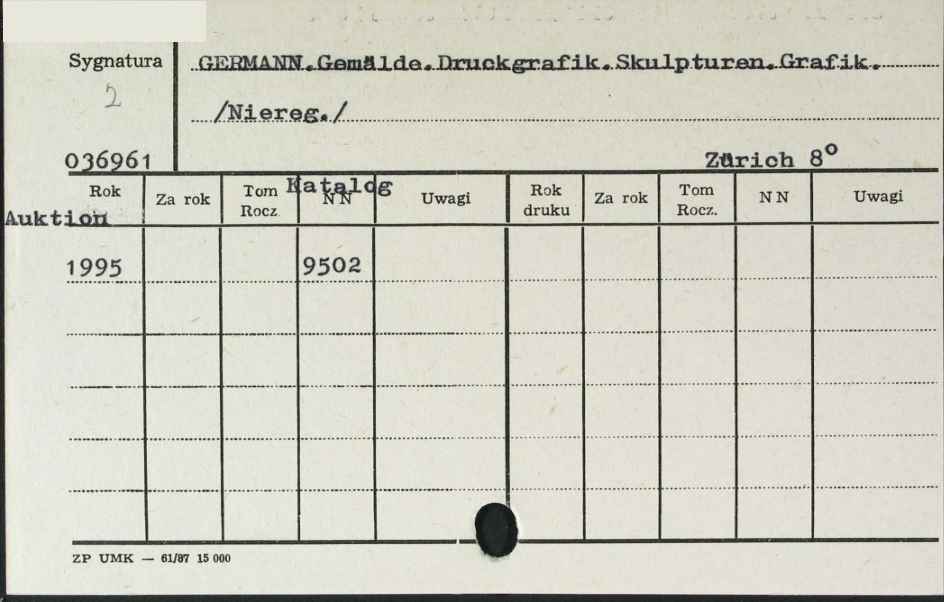 Sygnatura GERMANN.Gemälde.Druckgrafik.Skulpturen.Grafik.
2 /Niereg./
036961 Zürich 8°
Rok Za rok Tom Rocz. Katalog NN Uwagi Rok druku Za rok Tom Rocz. NN Uwagi
Auktion
1995 9502
ZP UMK — 61/87 15 000